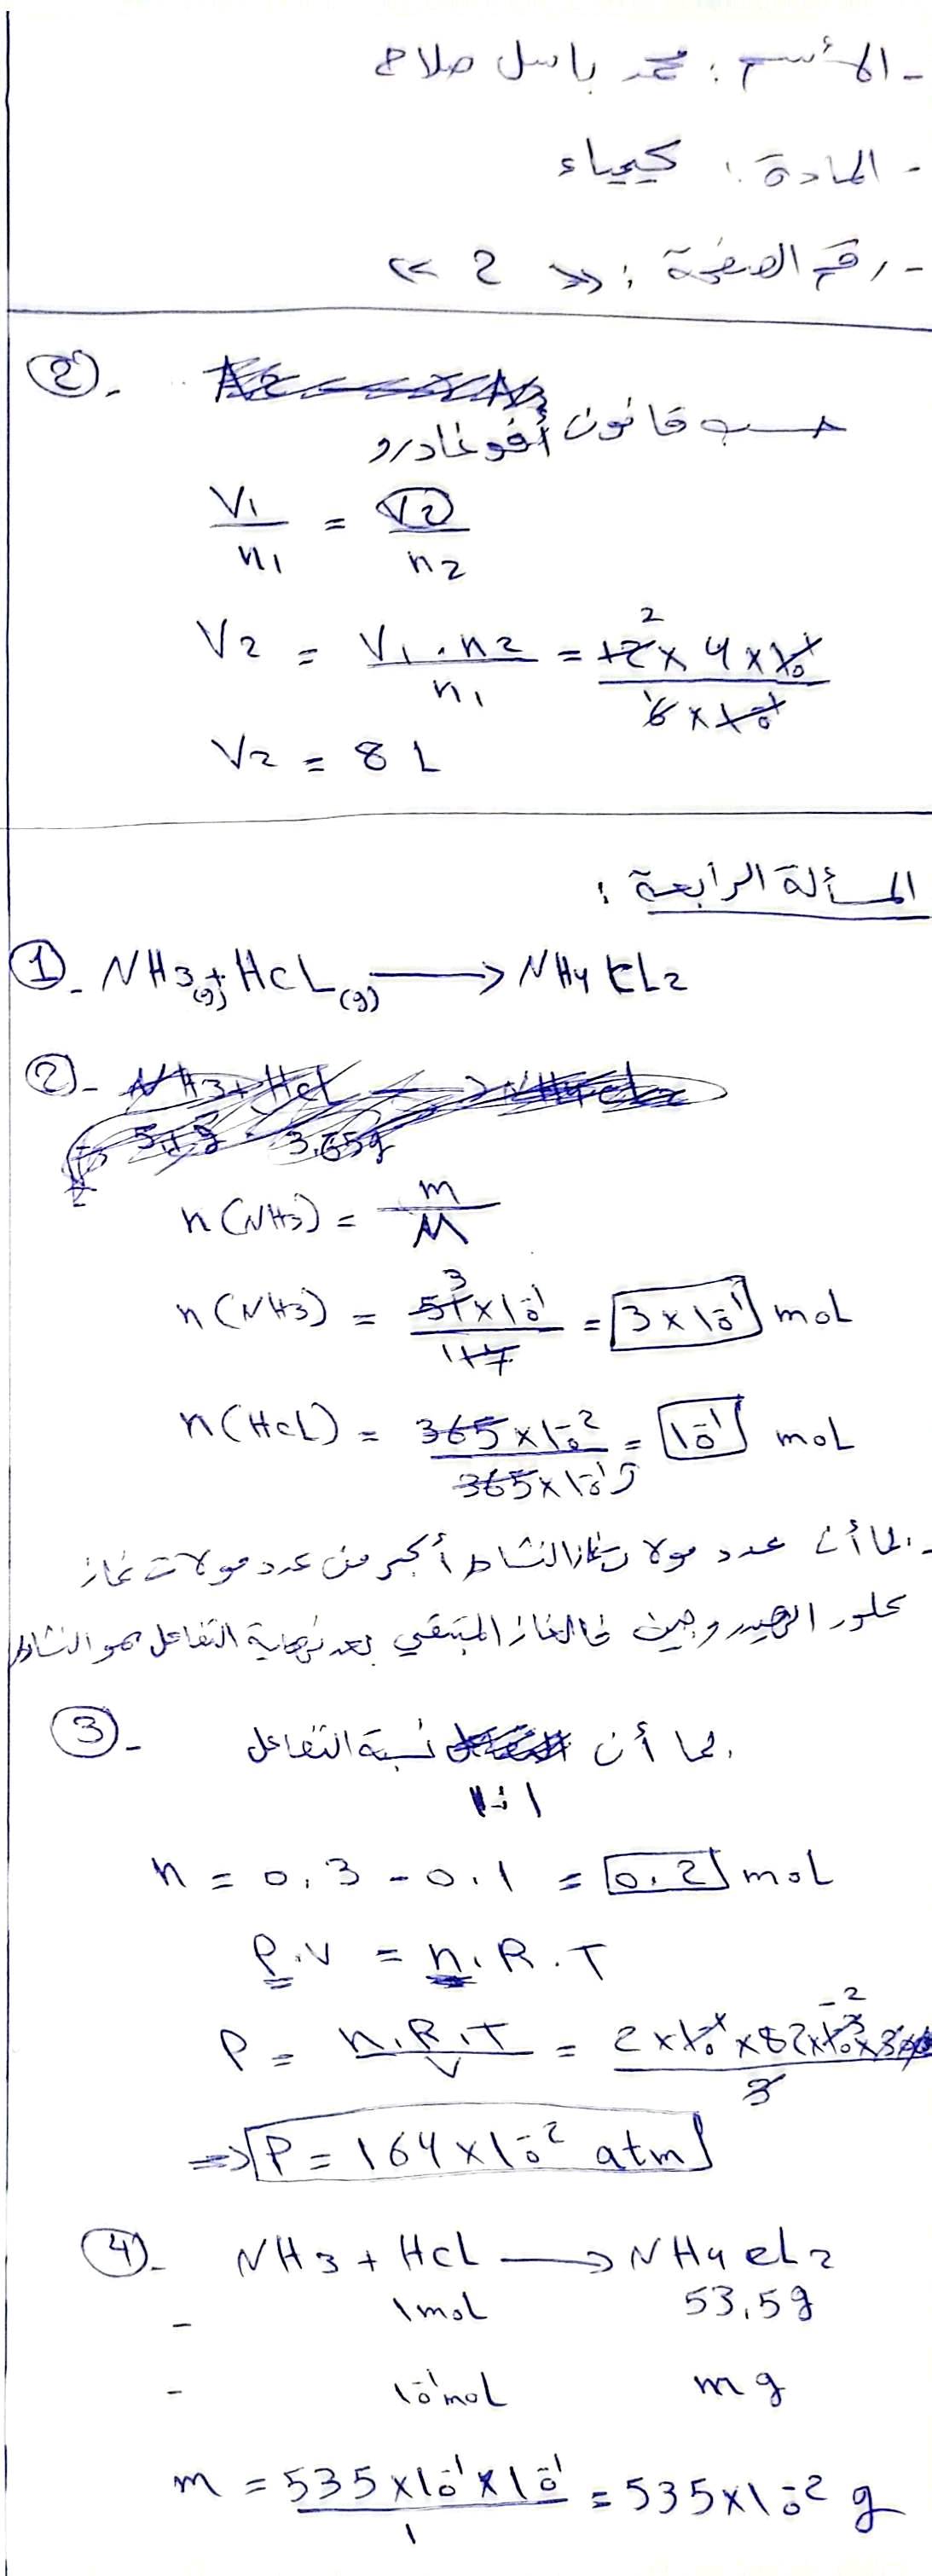 - الأسم : محمد باسل صلاح
- المادة : كيمياء
- رقم الصفحة : >> 2 <<
②-
حسب قانون أفوغادرو
V1/n1 = V2/n2
V2 = V1 . n2/n1 = 12 × 4 × 10⁻¹/6 × 10⁻¹
V2 = 8 L
المسألة الرابعة :
①- NH3(g) + HCL(g) → NH4 CL2
②-
n (NH3) = m/M
n (NH3) = 51 × 10⁻¹/17 = 3 × 10⁻¹ mol
n (HCL) = 365 × 10⁻²/365 × 10⁻¹ = 10⁻¹ mol
- بما أن عدد مولات غاز النشادر أكبر من عدد مولات غاز
كلور الهيدروجين فالغاز المتبقي بعد نهاية التفاعل هو النشادر
③-
بما أن نسبة التفاعل
1:1
n = 0.3 - 0.1 = 0.2 mol
P.V = n.R.T
P = n.R.T/V = 2 × 10⁻¹ × 82 × 10⁻³ × 300/3
⇒ P = 164 × 10⁻² atm
④- NH3 + HCL → NH4 CL2
- 1mol 53.5g
- 10⁻¹mol m g
m = 535 × 10⁻¹ × 10⁻¹/1 = 535 × 10⁻² g